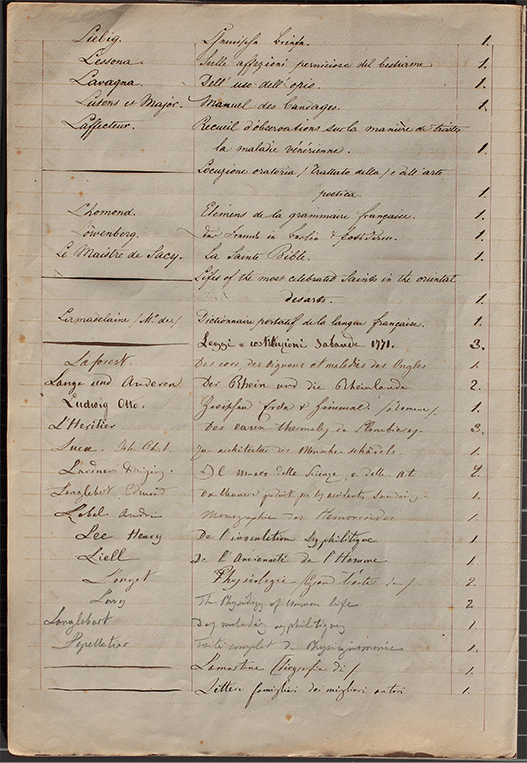 Liebig. Chemische Briefe. 1.
Lessona Sulle affezioni perniciose del bestiame. 1.
Lavagna. Dell' uso dell' opio. 1.
Lutens et Major. Manuel des bandages. 1.
Laffecteur. Recueil d'observations sur la manière de traiter
la maladie vénérienne. 1.
Locuzione oratoria / Trattato della / e dell' arte
poetica. 1.
Lhomond. Elémens de la grammaire française. 1.
Löwenberg. in Berlin & 1.
Le Maistre de Sacy. La Sainte Bible. 1.
Lifes of the most celebrated Saints in the oriental
desarts. 1.
Lamadelaine / Mr de / Dictionnaire portatif de la langue française. 1.
Leggi e costituzioni Sabaude 1771. 3.
Laforest Des cors, des oignons et maladies des Ongles 1.
Lange und Der Rhein und die Rheinlande 2.
Ludwig Otto. Zwischen Erde & Himmel. 1.
L'Héritier Des eaux thermales de Plombières. 3.
Lucae. Joh. Christ. Zur architectur des Menschenschädels. 1.
Lardner Il museo delle Scienze, e delle Arti.
Langlebert Edmond 1.
Lebel André Monographie des Hémorroides 1.
Lee Henry De l'inoculation Syphilitique 1.
Liell De l'Ancienneté de l'Homme 1.
Longet Physiologie / Grand traité de / 2.
The Physiology of common life 2.
Langlebert des maladies syphilitiques 1.
Lepelletier Traité complet de Physiognomonie 1.
Lamartine / Biografia di / 1.
Lettere famigliari dei migliori autori 1.